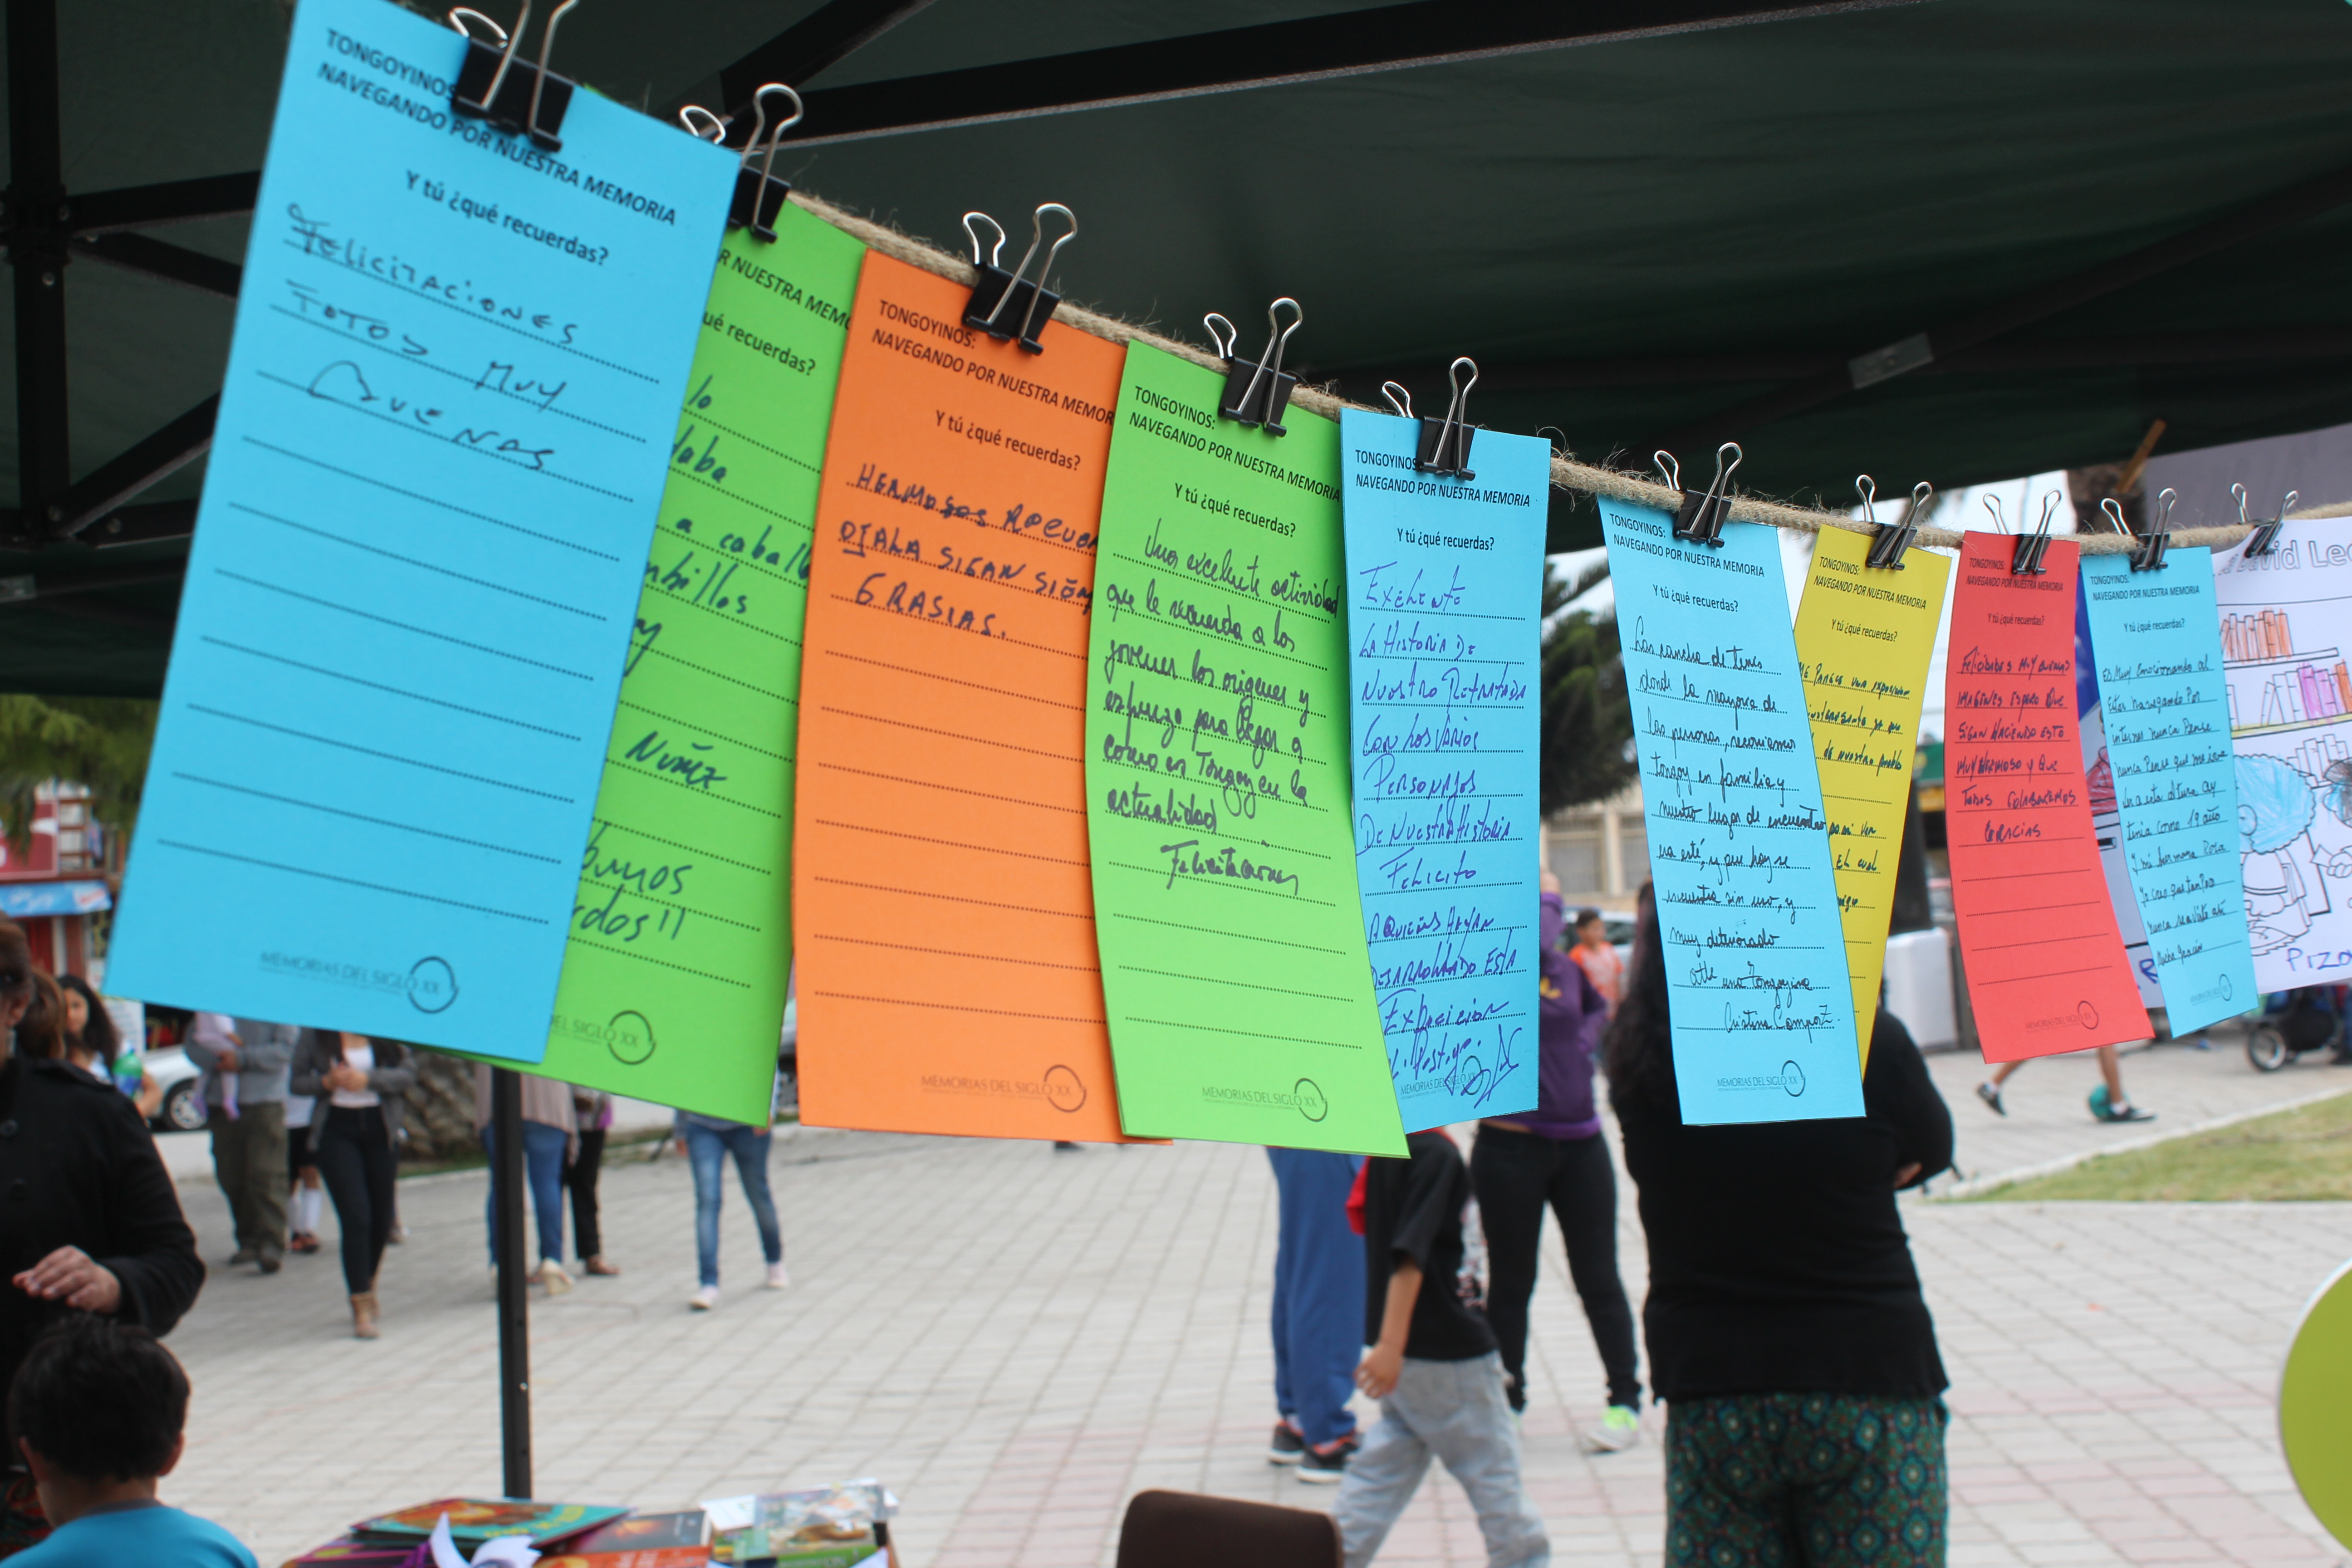 TONGOYINOS
NAVEGANDO POR NUESTRA MEMORIA
Y tú ¿qué recuerdas?
Felicitaciones
Fotos muy
Buenas
MEMORIAS DEL SIGLO XX
R NUESTRA MEMO
ué recuerdas?
lo
daba
a caball
mbrillos
y
Nuñez
buenos
rdos!!
DEL SIGLO XX
TONGOYINOS:
NAVEGANDO POR NUESTRA MEMOR
Y tú ¿qué recuerdas?
HERMOSOS RECUER
OJALA SIGAN SIEM
GRASIAS.
MEMORIAS DEL SIGLO XX
TONGOYINOS:
NAVEGANDO POR NUESTRA MEMORIA
Y tú ¿qué recuerdas?
Una excelente actividad
que le recuerda a los
jovenes los origenes y
esfuerzo para llegar a
como es Tongoy en la
actualidad
Felicitaciones
MEMORIAS DEL SIGLO XX
TONGOYINOS
NAVEGANDO POR NUESTRA MEMORIA
Y tú ¿qué recuerdas?
Exelente
La Historia de
Nuestro Retratada
Con los Varios
Personajes
De Nuestra Historia
Felicito
A Quienes Hayan
Desarrollado Esta
Exposicion
MEMORIAS DEL SIGLO XX
TONGOYINOS:
NAVEGANDO POR NUESTRA MEMORIA
Y tú ¿qué recuerdas?
Las cancha de tenis
donde la mayoria de
las personas, recorriamos
tongoy en familia y
nuestro lugar de encuentro
era esté, y que hoy se
encuentra sin uso, y
muy deteriorado
Atte una Tongoyina
Cristina Campo
MEMORIAS DEL SIGLO XX
TONGOYINOS:
NAVEGANDO POR NUESTRA MEMORIA
Y tú ¿qué recuerdas?
Me Parece una exposicion
de nuestro pueblo
El cual
TONGOYINOS:
NAVEGANDO POR NUESTRA MEMORIA
Y tú ¿qué recuerdas?
Felicidades muy buenas
imagenes espero que
sigan haciendo esto
muy hermoso y que
todos colaboremos
Gracias
MEMORIAS DEL SIGLO XX
TONGOYINOS:
NAVEGANDO POR NUESTRA MEMORIA
Y tú ¿qué recuerdas?
Es muy emocionando al
estar navegando por
internet nunca Pense
nunca Pense que me
a esta altura ay
tenia como 19 año
y mi hermana Rosa
yo creo que tampo
nunca
MEMORIAS DEL SIGLO XX
David Le
R
Pizo